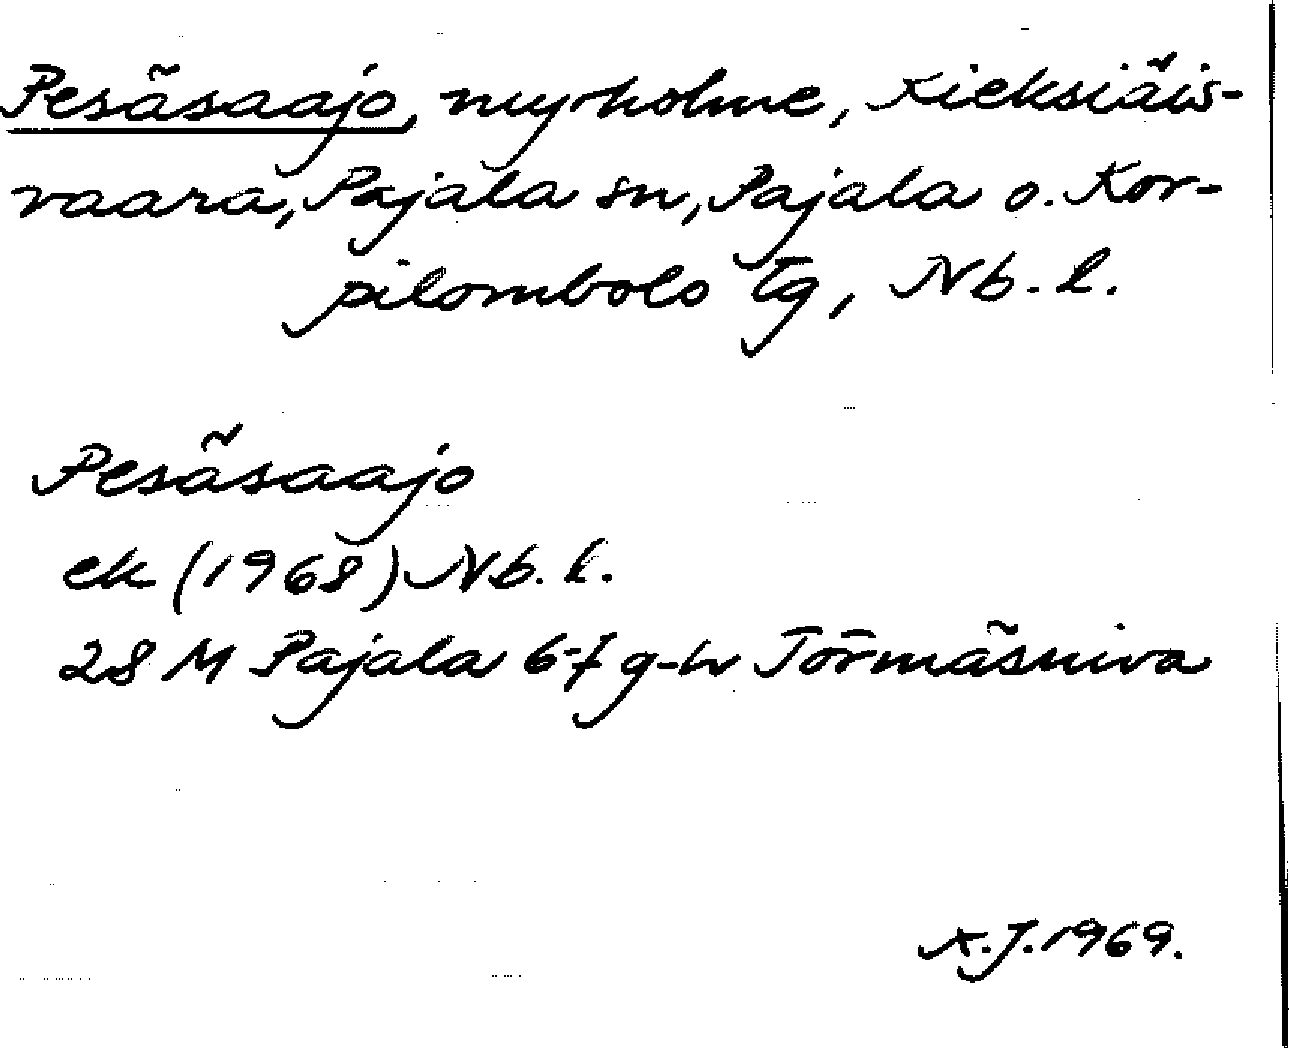 Pesäsaajo, myrholme, Kieksiäis-
vaara, Pajala sn, Pajala o. Kor-
pilombolo tg, Nb. l.
Pesäsaajo
ek (1968) Nb. l.
28 M Pajala 6-7 g-h Törmäsniva
K.J. 1969.